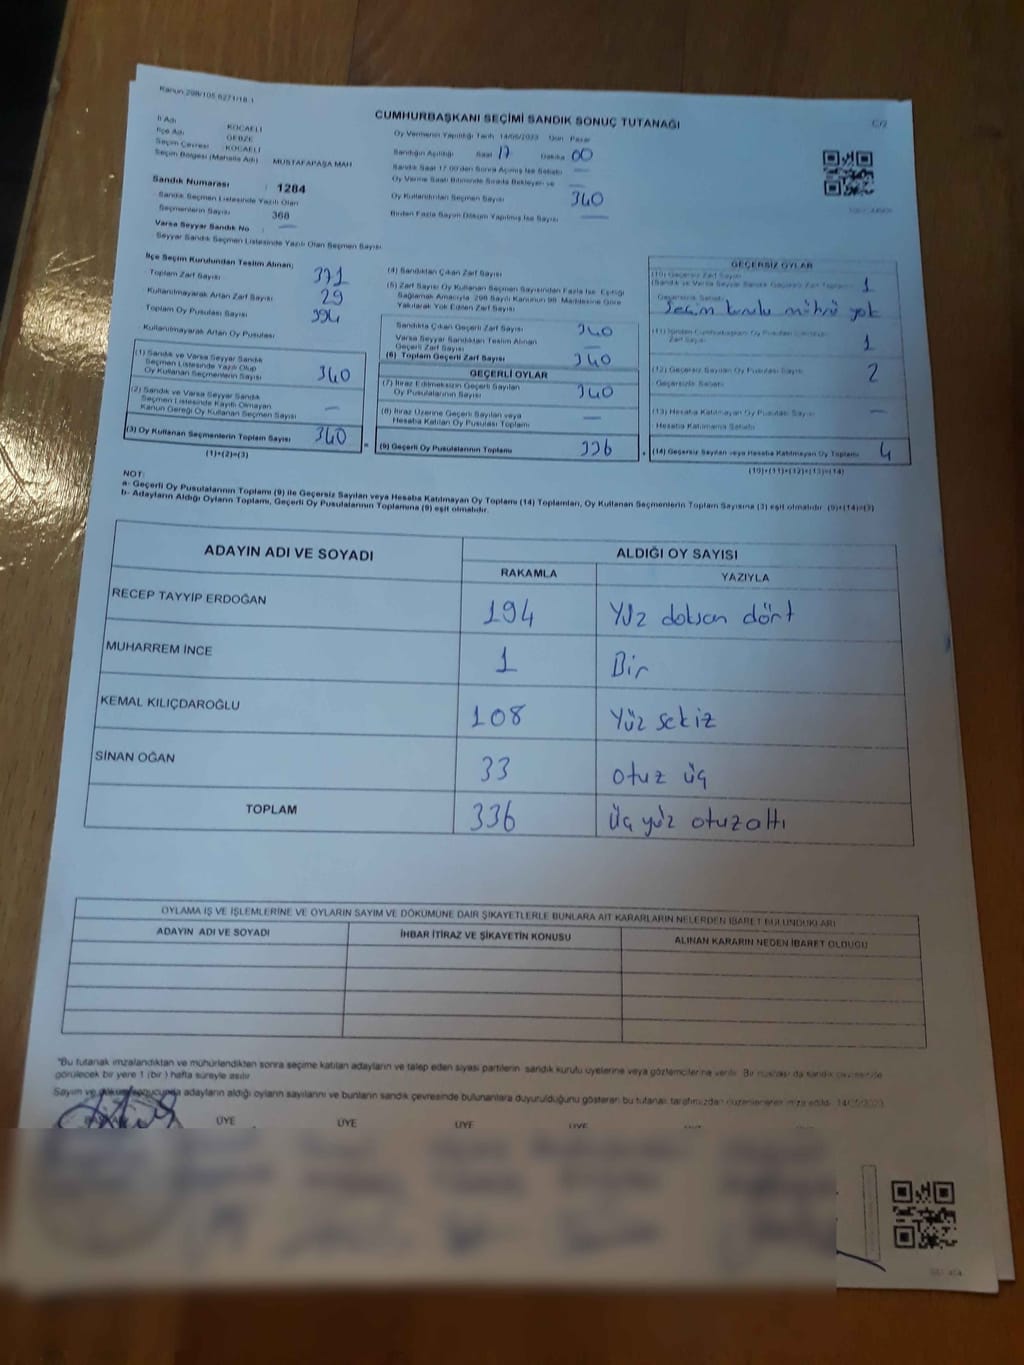 Kanun 298/105 6271/18 1
CUMHURBAŞKANI SEÇİMİ SANDIK SONUÇ TUTANAĞI
C/2
İl Adı KOCAELİ
İlçe Adı GEBZE
Seçim Çevresi KOCAELİ
Seçim Bölgesi (Mahalle Adı) MUSTAFAPAŞA MAH
Oy Vermenin Yapıldığı Tarih 14/05/2023 Gün Pazar
Sandığın Açıldığı Saat 17 Dakika 00
Sandık Saat 17:00'den Sonra Açılmış İse Sebebi —
Oy Verme Saati Bitiminde Sırada Bekleyen ve
Oy Kullandırılan Seçmen Sayısı 340
Birden Fazla Sayım Döküm Yapılmış İse Sayısı —
Sandık Numarası : 1284
Sandık Seçmen Listesinde Yazılı Olan
Seçmenlerin Sayısı 368
Varsa Seyyar Sandık No : —
Seyyar Sandık Seçmen Listesinde Yazılı Olan Seçmen Sayısı
İlçe Seçim Kurulundan Teslim Alınan;
Toplam Zarf Sayısı 371
Kullanılmayarak Artan Zarf Sayısı 29
Toplam Oy Pusulası Sayısı 394
Kullanılmayarak Artan Oy Pusulası
(1) Sandık ve Varsa Seyyar Sandık
Seçmen Listesinde Yazılı Olup
Oy Kullanan Seçmenlerin Sayısı 340
(2) Sandık ve Varsa Seyyar Sandık
Seçmen Listesinde Kayıtlı Olmayan
Kanun Gereği Oy Kullanan Seçmen Sayısı —
(3) Oy Kullanan Seçmenlerin Toplam Sayısı 340
(1)+(2)=(3)
(4) Sandıktan Çıkan Zarf Sayısı
(5) Zarf Sayısı Oy Kullanan Seçmen Sayısından Fazla İse, Eşitliği
Sağlamak Amacıyla 298 Sayılı Kanunun 98. Maddesine Göre
Yakılarak Yok Edilen Zarf Sayısı
Sandıkta Çıkan Geçerli Zarf Sayısı 340
Varsa Seyyar Sandıktan Teslim Alınan
Geçerli Zarf Sayısı —
(6) Toplam Geçerli Zarf Sayısı 340
GEÇERLİ OYLAR
(7) İtiraz Edilmeksizin Geçerli Sayılan
Oy Pusulalarının Sayısı 340
(8) İtiraz Üzerine Geçerli Sayılan veya
Hesaba Katılan Oy Pusulası Toplamı —
(9) Geçerli Oy Pusulalarının Toplamı 336
GEÇERSİZ OYLAR
(10) Geçersiz Zarf Sayısı
(Sandık ve Varsa Seyyar Sandık Geçersiz Zarf Toplamı) 1
Geçersizlik Sebebi
Seçim kurulu mührü yok
Zarf Sayısı 1
(12) Geçersiz Sayılan Oy Pusulası Sayısı 2
Geçersizlik Sebebi
(13) Hesaba Katılmayan Oy Pusulası Sayısı —
Hesaba Katılmama Sebebi
(14) Geçersiz Sayılan veya Hesaba Katılmayan Oy Toplamı 4
(10)+(11)+(12)+(13)=(14)
NOT:
a- Geçerli Oy Pusulalarının Toplamı (9) ile Geçersiz Sayılan veya Hesaba Katılmayan Oy Toplamı (14) Toplamları, Oy Kullanan Seçmenlerin Toplam Sayısına (3) eşit olmalıdır. (9)+(14)=(3)
b- Adayların Aldığı Oyların Toplamı, Geçerli Oy Pusulalarının Toplamına (9) eşit olmalıdır.
ADAYIN ADI VE SOYADI
ALDIĞI OY SAYISI
RAKAMLA YAZIYLA
RECEP TAYYİP ERDOĞAN 194 Yüz doksan dört
MUHARREM İNCE 1 Bir
KEMAL KILIÇDAROĞLU 108 Yüz sekiz
SİNAN OĞAN 33 otuz üç
TOPLAM 336 Üç yüz otuzaltı
OYLAMA İŞ VE İŞLEMLERİNE VE OYLARIN SAYIM VE DÖKÜMÜNE DAİR ŞİKAYETLERLE BUNLARA AİT KARARLARIN NELERDEN İBARET BULUNDUKLARI
ADAYIN ADI VE SOYADI İHBAR İTİRAZ VE ŞİKAYETİN KONUSU ALINAN KARARIN NEDEN İBARET OLDUĞU
"Bu tutanak imzalandıktan ve mühürlendikten sonra seçime katılan adayların ve talep eden siyasi partilerin sandık kurulu üyelerine veya gözlemcilerine verilir. Bir nüshası da sandık çevresinde
görülecek bir yere 1 (bir) hafta süreyle asılır.
Sayım ve döküm sonucunda adayların aldığı oyların sayılarını ve bunların sandık çevresinde bulunanlara duyurulduğunu gösteren bu tutanak tarafımızdan düzenlenerek imza edildi. 14/05/2023
BAŞKAN ÜYE ÜYE ÜYE ÜYE